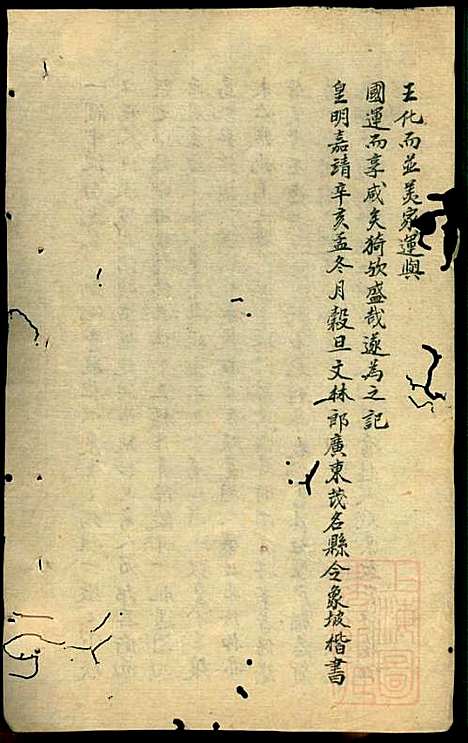 王化而並美家運與
國運而享咸矣猗欤盛哉遂為之記
皇明嘉靖辛亥孟冬月穀旦文林郎廣東茂名縣令象坡楷書